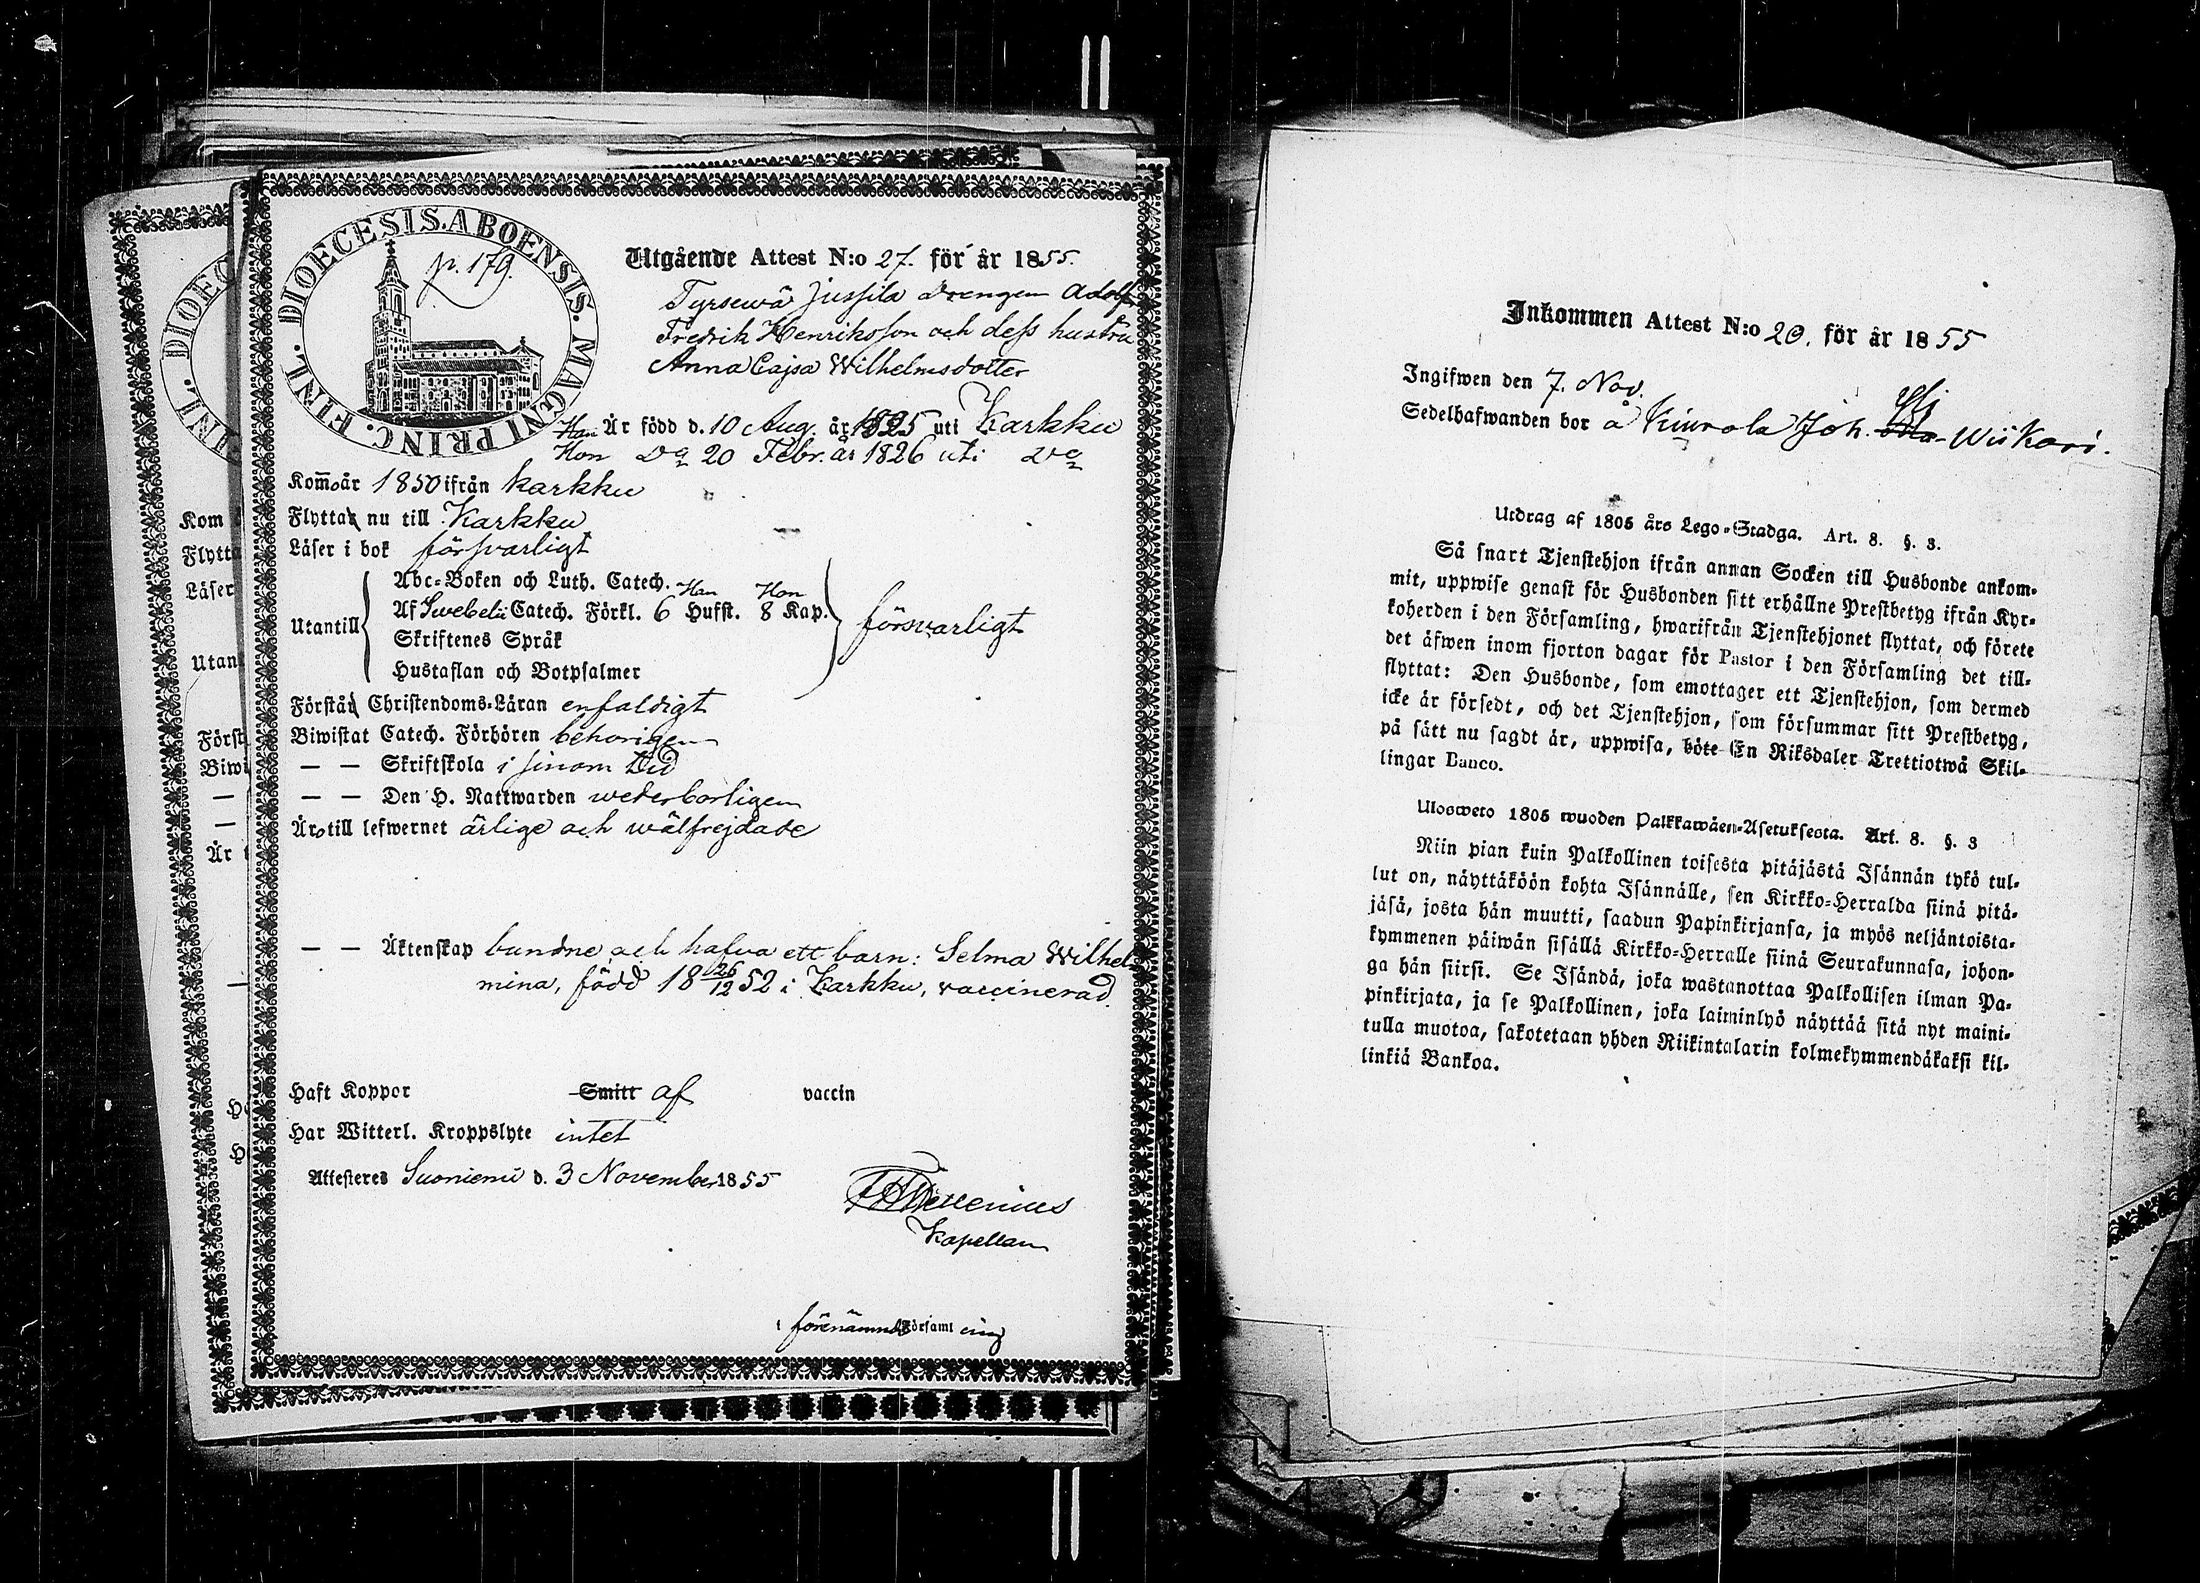 DIOECESIS. ABOENSIS. MAGNI PRINC. FINL.
p. 179.
Utgående Attest N:o 27. för år 1855.
Tyrsewä Jussila drengen Adolf
Fredrik Henriksson och dess hustru
Anna Cajsa Wilhelmsdotter
Han Är född d. 10 Aug. år 1825 uti Karkku
Hon Do 20 Febr. år 1826 uti do
Kommo år 1850 ifrån Karkku
Flytta nu till Karkku
Läser i bok försvarligt
Utantill
Abc-Boken och Luth. Catech.
Han Hon
Af Swebelii Catech. Förkl. 6 Hufst. 8 Kap.
Skriftenes Språk
Hustaflan och Botpsalmer
försvarligt
Förstå Christendoms-Läran enfaldigt
Biwistat Catech. Förhören behörigen
— — Skriftskola i sinom tid
— — Den H. Nattwarden wederborligen
Äro till lefwernet ärlige och wälfrejdade
— — Äktenskap bundne och hafva ett barn: Selma Wilhel-
mina, född 18 26/12 52 i Karkku, vaccinerad.
Haft Koppor Smitt af vaccin
Har Witterl. Kroppslyte intet
Attesteres Suoniemi d. 3 November 1855
Kapellan
i förenämnde Församling
Kom
Flytta
Läser
Utan
Först
Biwi
—
—
Är
Inkommen Attest N:o 20. för år 1855
Ingifwen den 7. Nov.
Sedelhafwanden bor å Kiurala Joh. Wiikari.
Utdrag af 1805 års Lego-Stadga. Art. 8. §. 3.
Så snart Tjenstehjon ifrån annan Socken till Husbonde ankom-
mit, uppwise genast för Husbonden sitt erhållne Prestbetyg ifrån Kyr-
koherden i den Församling, hwarifrån Tjenstehjonet flyttat, och förete
det äfwen inom fjorton dagar för Pastor i den Församling det till-
flyttat: Den Husbonde, som emottager ett Tjenstehjon, som dermed
icke är försedt, och det Tjenstehjon, som försummar sitt Prestbetyg,
på sätt nu sagdt är, uppwisa, böte En Riksdaler Trettiotwå Skil-
lingar Banco.
Ulosweto 1805 wuoden Palkkawäen-Asetuksesta. Art. 8. §. 3
Niin pian kuin Palkollinen toisesta pitäjästä Isännän tykö tul-
lut on, näyttäköön kohta Isännälle, sen Kirkko-Herralda siinä pitä-
jäsä, josta hän muutti, saadun Papinkirjansa, ja myös neljäntoista-
kymmenen päiwän sisällä Kirkko-Herralle siinä Seurakunnasa, johon-
ga hän siirsi. Se Isändä, joka wastanottaa Palkollisen ilman Pa-
pinkirjata, ja se Palkollinen, joka laiminlyö näyttää sitä nyt maini-
tulla muotoa, sakotetaan yhden Riikintalarin kolmekymmendäkaksi kil-
linkiä Bankoa.